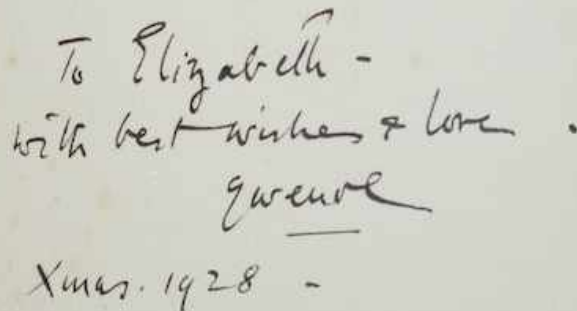 To Elizabeth -
with best wishes & love .
Gwenol
Xmas. 1928 -